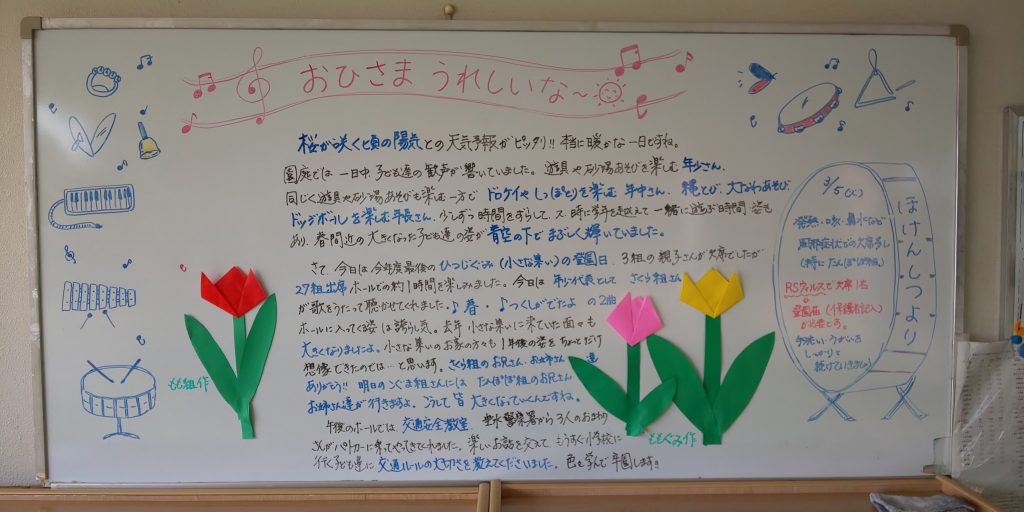 おひさま うれしいな～
桜が咲く頃の陽気との天気予報がピッタリ!! 本当に暖かな一日ですね。
園庭では一日中子ども達の歓声が響いていました。遊具や砂場あそびを楽しむ年少さん、
同じく遊具や砂場あそびも楽しむ一方で ドロケイやしっぽとりを楽しむ年中さん、縄とび、大なわあそび、
ドッヂボールを楽しむ年長さん、少しずつ時間をずらして、又、時に学年を越えて一緒に遊ぶ時間、姿も
あり、春間近の大きくなった子ども達の姿が青空の下でまぶしく輝いていました。
さて、今日は今年度最後のひつじぐみ(小さな集い)の登園日、3組の親子さんが欠席でしたが
27組出席 ホールでの約1時間を楽しみました。今日は年少代表として さくら組さん
が歌をうたって聴かせてくれました。♪春・♪つくしがでたよ の2曲
ホールに入ってくる姿は誇らし気。去年小さな集いに来ていた面々も
大きくなりましたよ。小さな集いのお家の方々も1年後の姿をちょっとだけ
想像できたのでは…と思います。さくら組のお兄さん、お姉さん 達
ありがとう!! 明日のこぐま組さんには たんぽぽ組のお兄さん
お姉さん達が行きますよ。こうして皆 大きくなっていくんですね。
午後のホールでは、交通安全教室、垂水警察署から3人のおまわり
さんがパトカーに乗ってやってきてくれました。楽しいお話を交えて、もうすぐ小学校に
行く子ども達に交通ルールの大切さを教えてくださいました。色々学んで卒園します!!
もも組作
ももぐみ作
ほけんだより
3/5(火)
発熱・咳・鼻水など
風邪症状での欠席多し
(特にたんぽぽ組)
RSウィルスで欠席1名
登園届(保護者記入)
が必要です。
手洗い、うがいを
しっかりと
続けていきましょう